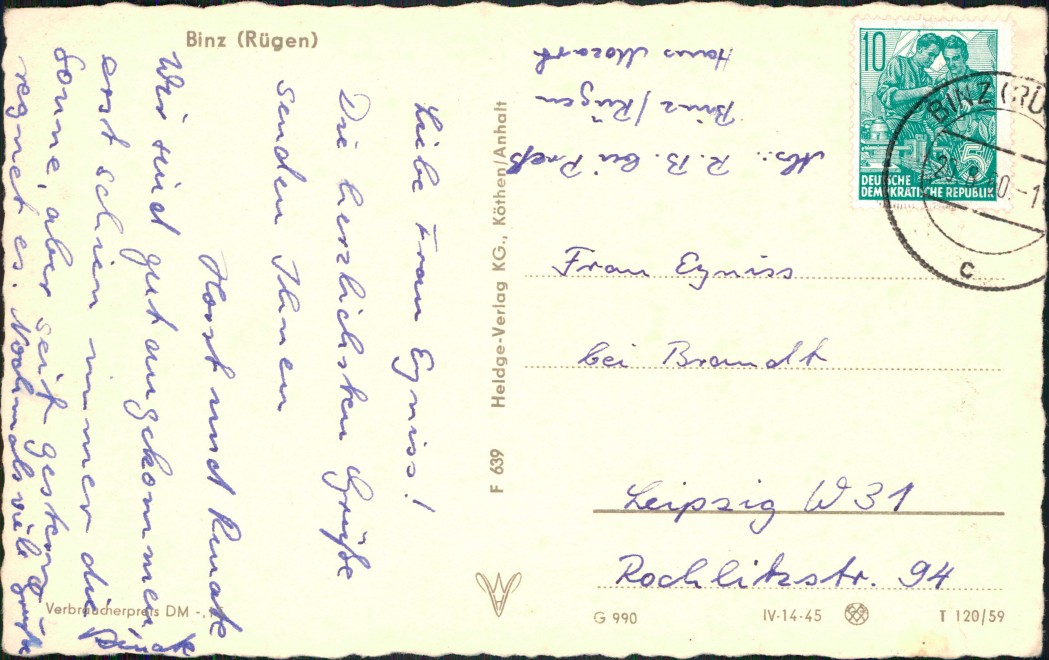 Binz (Rügen)
Liebe Frau Egniss!
Die herzlichsten Grüße
senden Ihnen
Horst und Renate
Wir sind gut angekommen,
erst schien immer die
Sonne, aber seit gestern
regnet es. Nochmals viele Grüße
Verbraucherpreis DM -,
F 639 Heldge-Verlag KG., Köthen/Anhalt
Abs.: R. B. bei Preß
Binz/Rügen
Hans Mozart
10
DEUTSCHE
DEMOKRATISCHE REPUBLIK
5
BINZ (RÜ
60.-1
c
Frau Egniss
bei Brandt
Leipzig W 31
Rochlitzstr. 94
G 990
IV-14-45
T 120/59